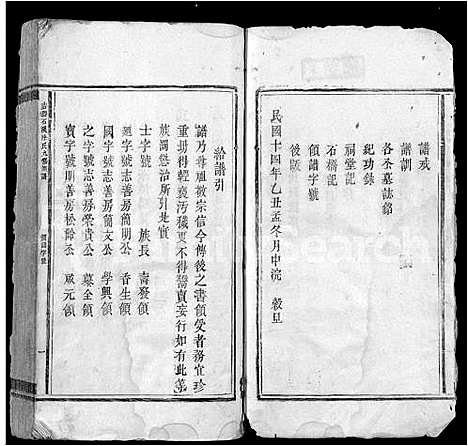 譜戒
譜訓
各圣墓誌銘
紀功錄
祠堂記
石橋記
領譜字號
後跋
民國十四年乙丑孟冬月中浣 穀旦
給譜引
譜乃尊祖敬宗信今傳後之書領受者務宜珍
重毋得輕褻汚穢更不得鬻賣妄行如有此等
族衆懲治所引是實
士字號 族長 壽發領
廻字號志善房簡朋公 香生領
國字號志善房簡文公 學興領
之字號志善房榮貴公 基全領
寶字號明善房松齡公 咸元領
一